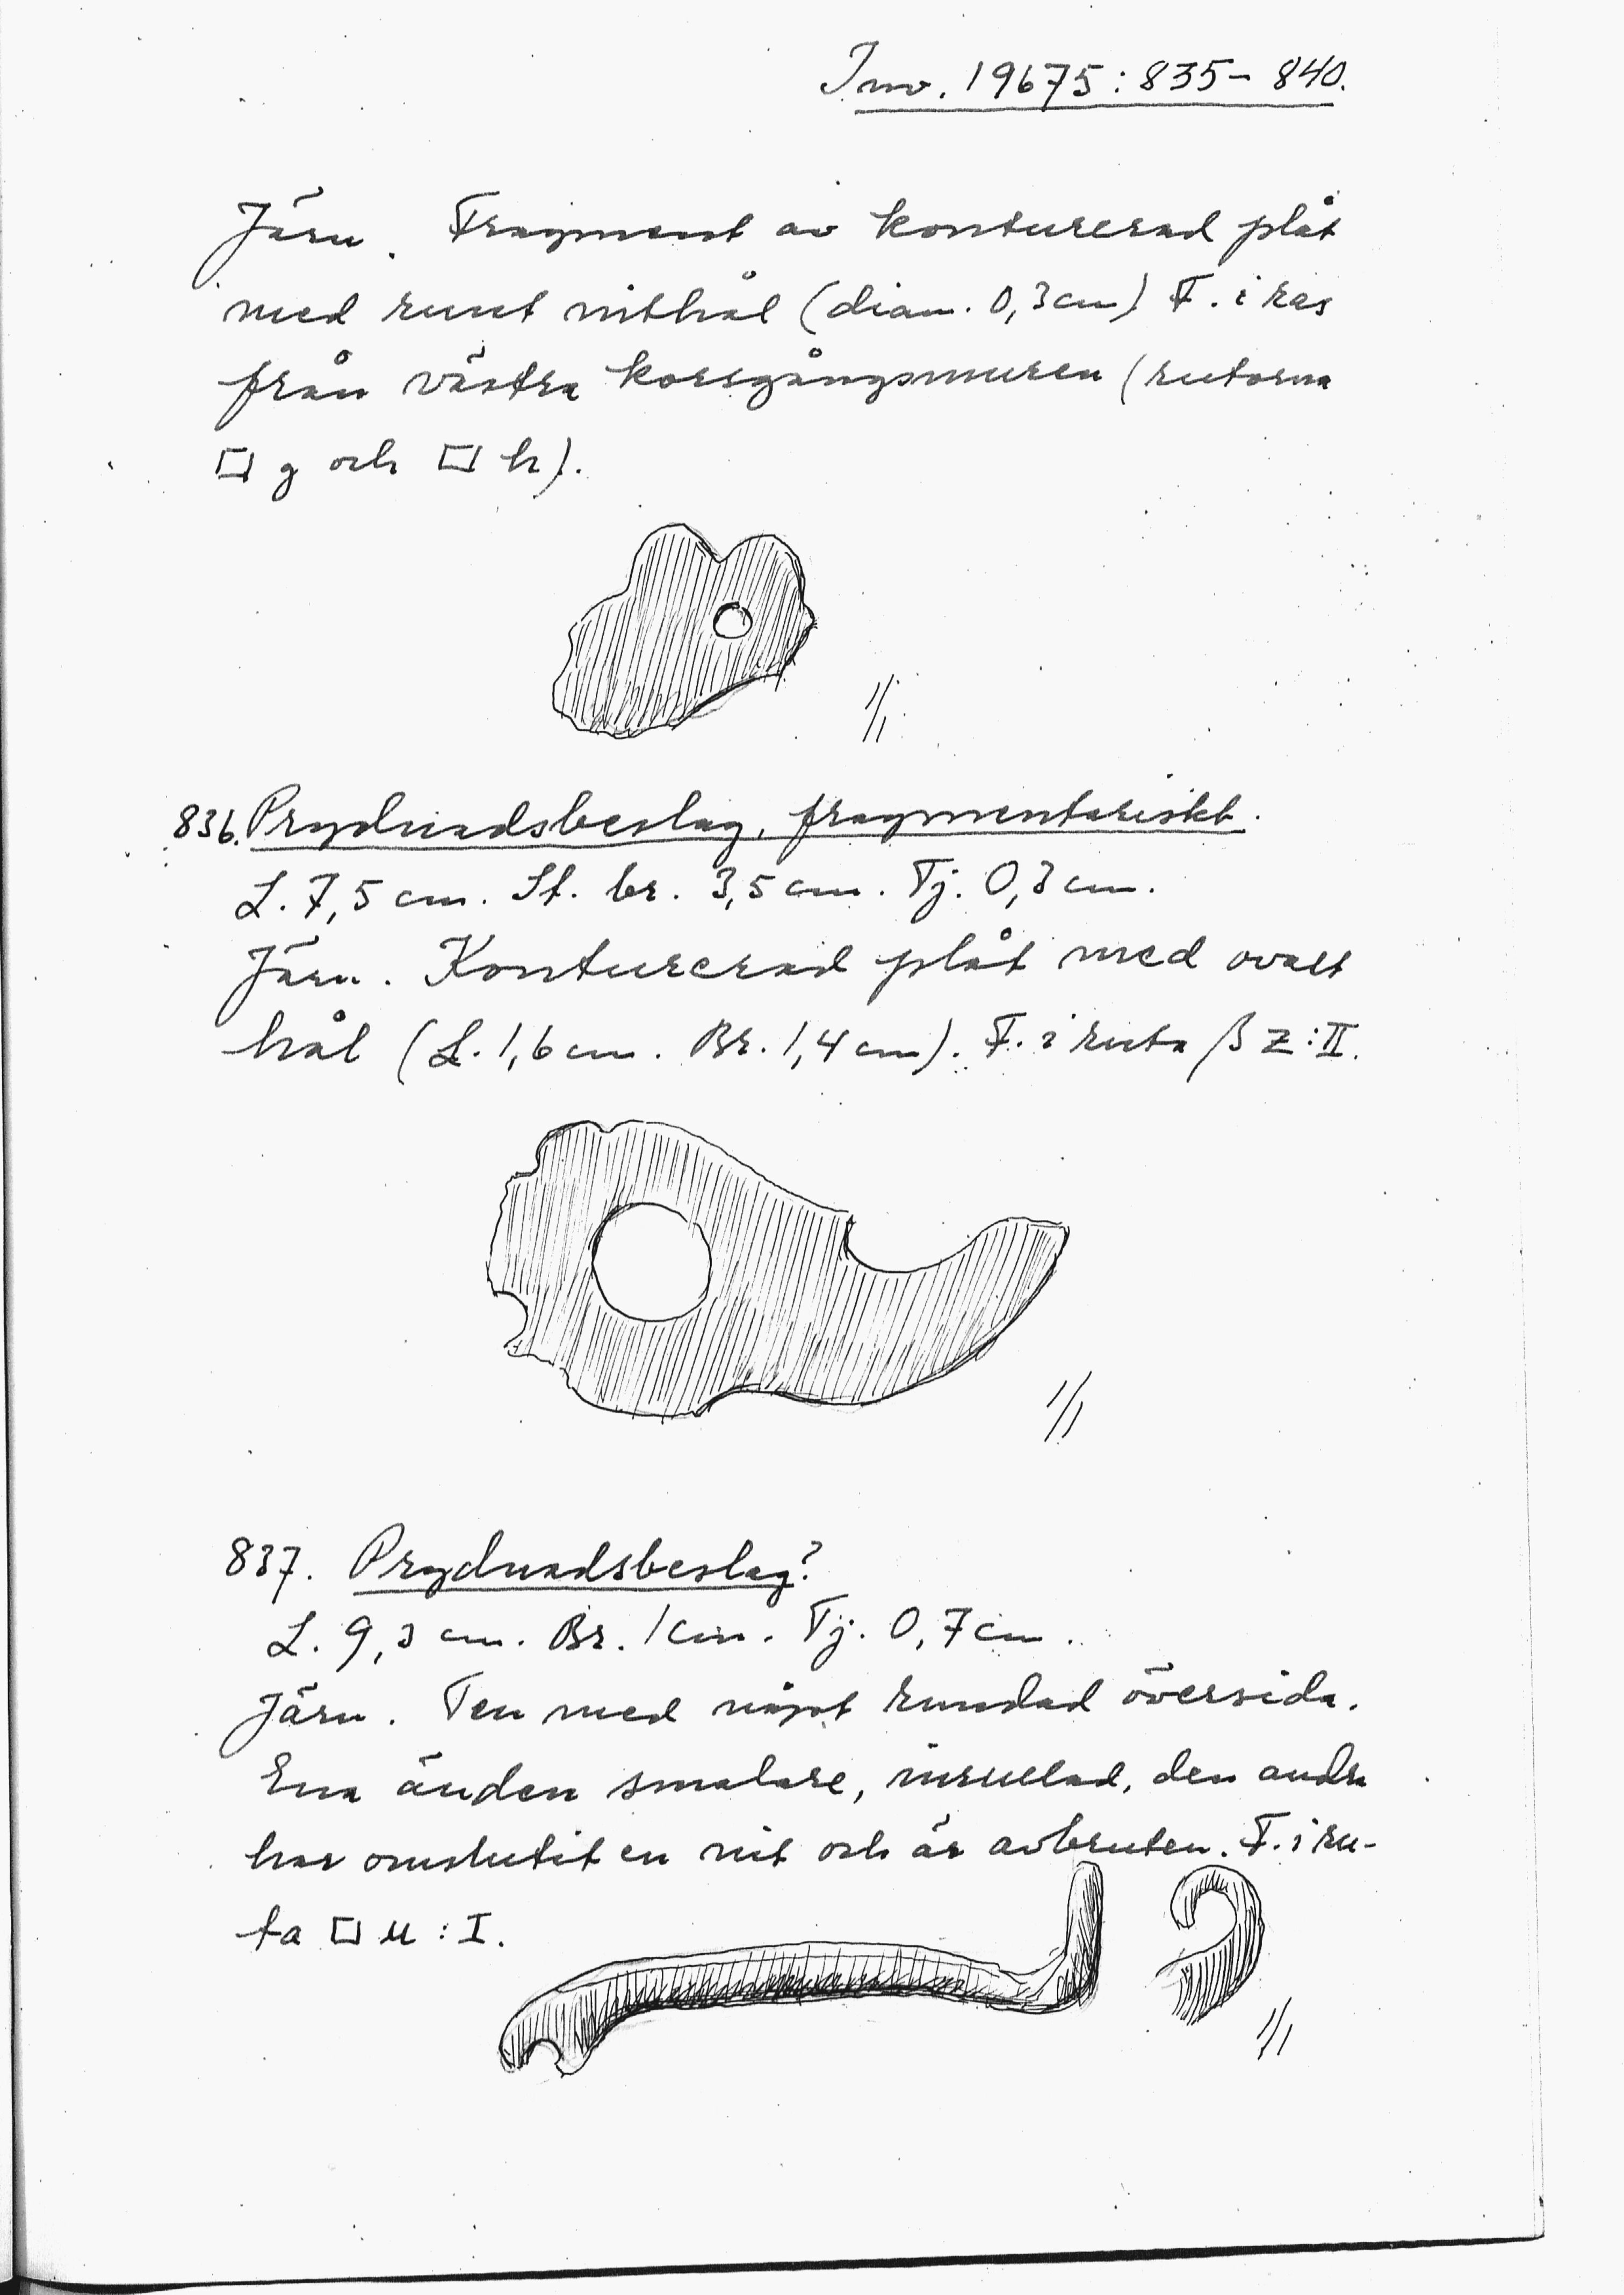 Inv. 19675:835–840.
Järn. Fragment av konturerad plåt
med runt nithål (diam. 0,3 cm) F. i ras
från västra korsgångsmuren (rutorna
□ g och □ h).
1/1
836. Prydnadsbeslag, fragmentariskt.
L. 7,5 cm. St. br. 3,5 cm. Tj. 0,3 cm.
Järn. Konturerad plåt med ovalt
hål (L. 1,6 cm. Br. 1,4 cm). F. i ruta β z:II.
1/1
837. Prydnadsbeslag?
L. 9,3 cm. Br. 1 cm. Tj. 0,7 cm.
Järn. Ten med något rundad översida.
Ena änden smalare, inrullad, den andra
har omslutit en nit och är avbruten. F. i ru-
ta □ u : I.
1/1